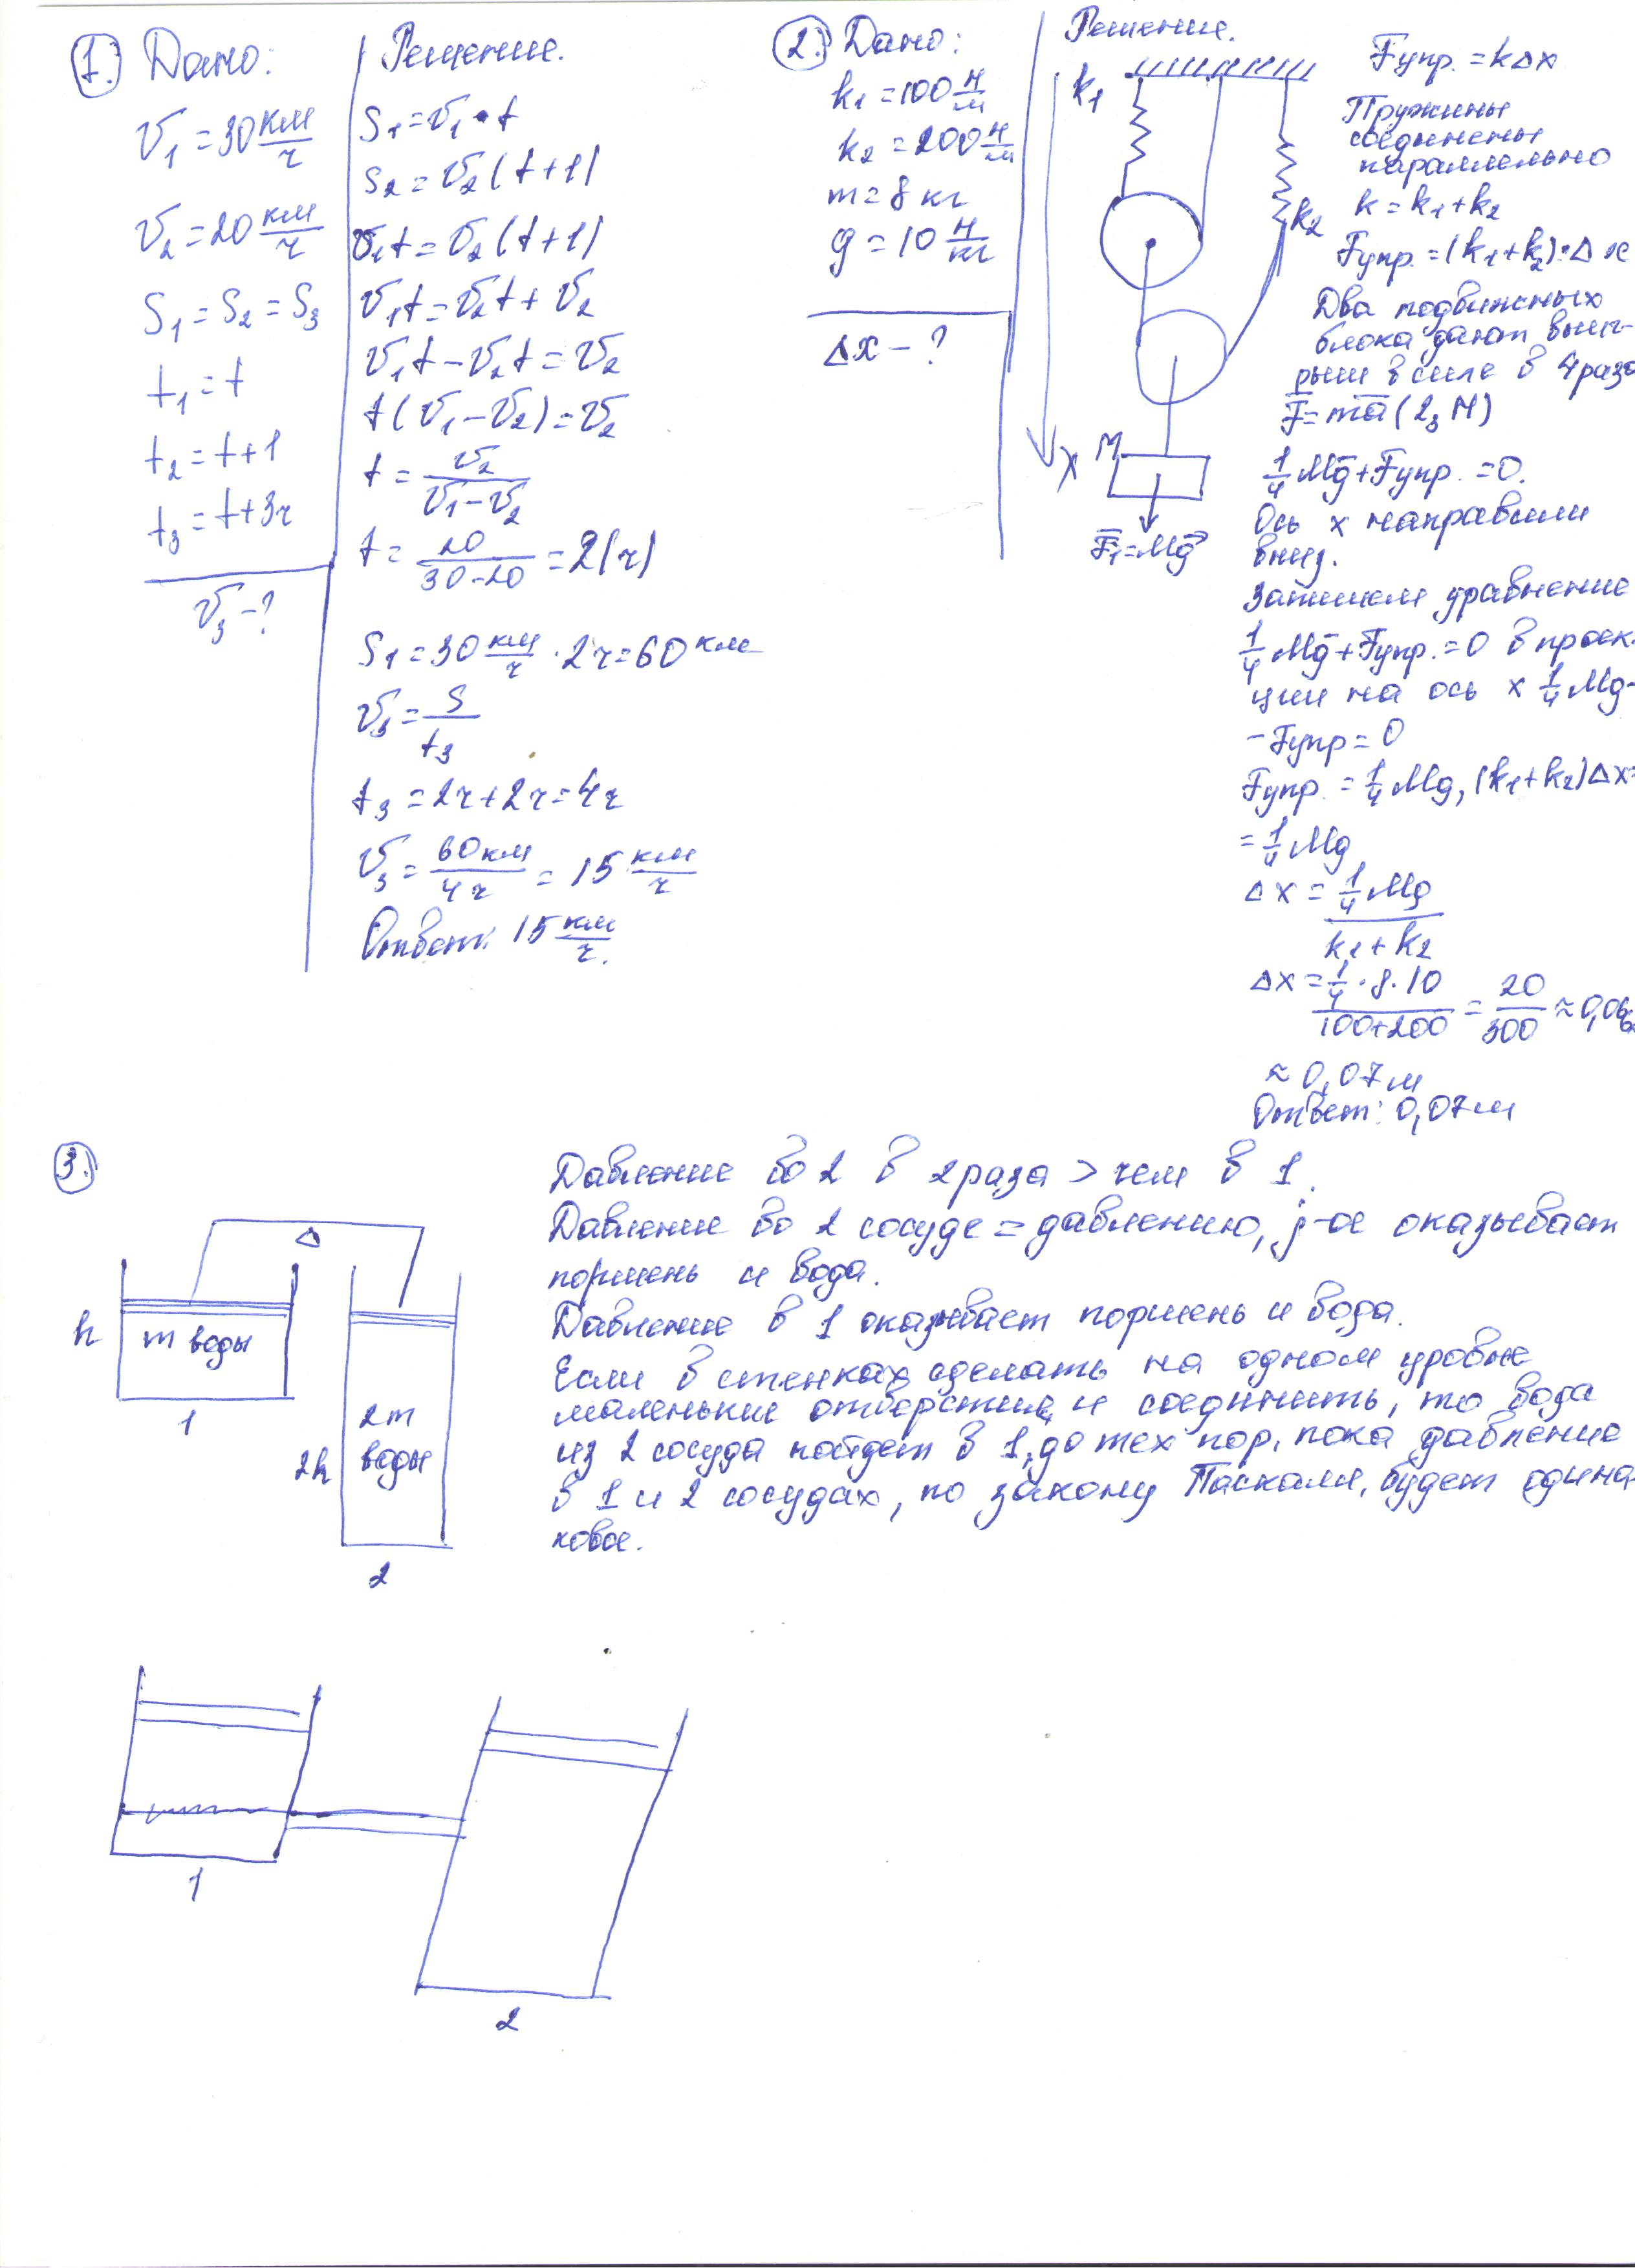 1. Дано:
V₁ = 30 км/ч
V₂ = 20 км/ч
S₁ = S₂ = S₃
t₁ = t
t₂ = t+1
t₃ = t+3ч
V₃ - ?
Решение.
S₁ = V₁ • t
S₂ = V₂ (t+1)
V₁t = V₂ (t+1)
V₁t = V₂t + V₂
V₁t - V₂t = V₂
t(V₁ - V₂) = V₂
t = V₂/(V₁ - V₂)
t = 20/(30-20) = 2(ч)
S₁ = 30 км/ч · 2ч = 60 км
V₃ = S/t₃
t₃ = 2ч+2ч=4ч
V₃ = 60км/4ч = 15 км/ч
Ответ: 15 км/ч.
2. Дано:
k₁ = 100 Н/м
k₂ = 200 Н/м
m = 8 кг
g = 10 Н/кг
Δx - ?
Решение.
k₁
k₂
X
M
F₁=Mg
Fупр. = kΔx
Пружины
соединены
параллельно
k = k₁+k₂
Fупр. = (k₁+k₂)·Δx
Два подвижных
блока дают выиг-
рыш в силе в 4 раза
F=ma (2з Н)
1/4 Mg+Fупр. =0.
Ось x направили
вниз.
Запишем уравнение
1/4 Mg+Fупр.=0 в проек-
ции на ось x 1/4 Mg-
-Fупр=0
Fупр. = 1/4 Mg, (k₁+k₂)Δx=
= 1/4 Mg
Δx = 1/4 Mg/(k₁+k₂)
Δx = 1/4·8·10/(100+200) = 20/300 ≈ 0,06
≈ 0,07 м
Ответ: 0,07 м
3.
Δ
h
m воды
1
2m
воды
2h
2
Давление во 2 в 2 раза > чем в 1.
Давление во 2 сосуде = давлению, j-ое оказывает
поршень и вода.
Давление в 1 оказывает поршень и вода.
Если в стенках сделать на одном уровне
маленькие отверстия и соединить, то вода
из 2 сосуда пойдет в 1, до тех пор, пока давление
в 1 и 2 сосудах, по закону Паскаля, будет одина-
ковое.
1
2